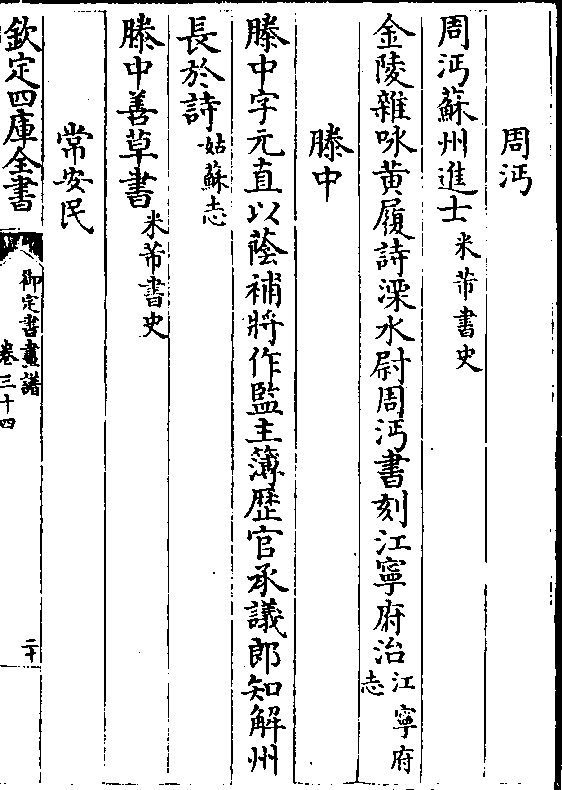 周沔
周沔蘇州進士米芾書史
金陵雜咏黄履詩溧水尉周沔書刻江寧府治江寧府志
滕中
滕中字元直以蔭補將作監主簿歴官承議郎知解州
長於詩姑蘇志
滕中善草書米芾書史
常安民
欽定四庫全書
御定書畫譜
卷三十四
二十